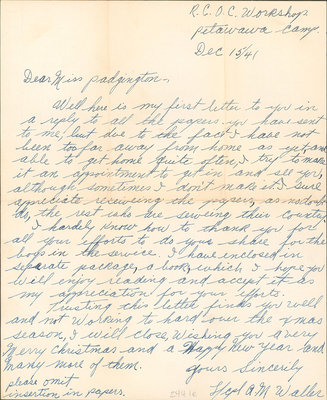 R.C.O.C. Workshop.
Petawawa Camp.
Dec 15/41
Dear Miss Padgington,
Well here is my first letter to you in
a reply to all the papers you have sent
to me, but due to the fact I have not
been too far away from home as yet, and
able to get home quite often, I try to make
it an appointment to get in and see you,
although sometimes I don't make it. I sure
appreciate receiveing the papers, as no doubt
do, the rest who are serveing their country.
I hardely know how to thank you for
all your efforts to do your share for the
boys in the service. I have enclosed in
separate package, a book, which I hope you
will enjoy reading and accept it as
my appreciation for your efforts.
Trusting this letter finds you well
and not working to hard over the xmas
season, I will close, Wishing you a very
Merry Christmas and a Happy New Year and
many more of them.
Yours Sincerily
A M Waller
please omit
insertion in papers.